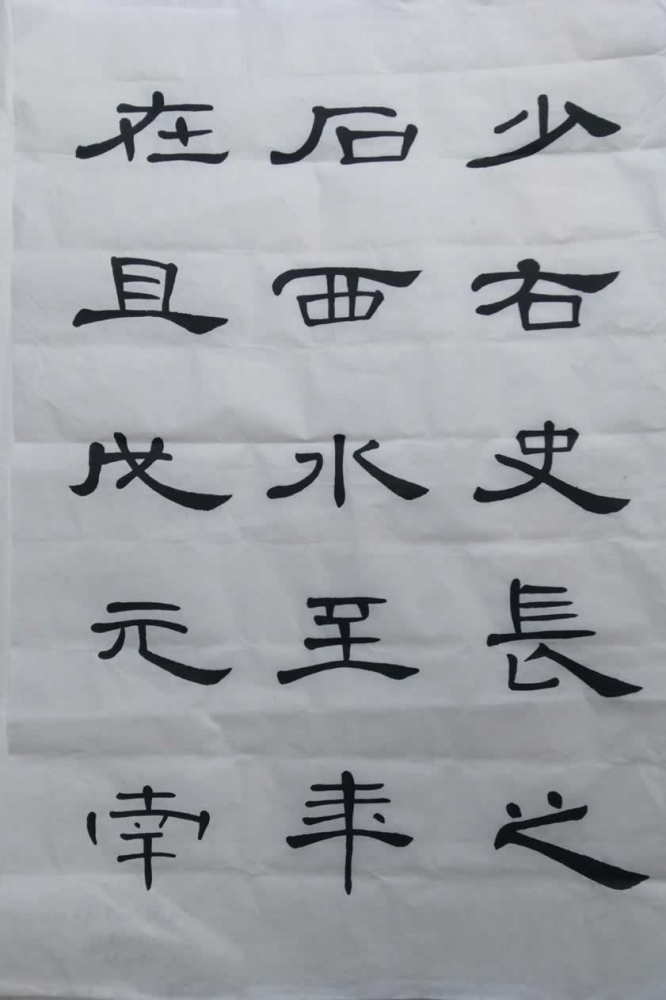 少右史長之
石西水至年
在且戊元南